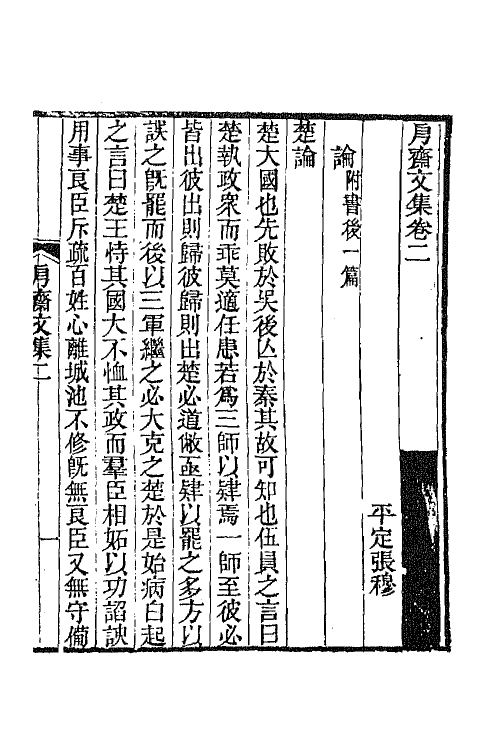 㐆齋文集卷二
平定張穆
論附書後一篇
楚論
楚大國也先敗於吳後亾於秦其故可知也伍員之言曰
楚執政衆而乖莫適任患若爲三師以肄焉一師至彼必
皆出彼出則歸彼歸則出楚必道敝亟肄以罷之多方以
誤之旣罷而後以三軍繼之必大克之楚於是始病白起
之言曰楚王恃其國大不恤其政而羣臣相妬以功諂諛
用事良臣斥疏百姓心離城池不修旣無良臣又無守備
㐆齋文集二